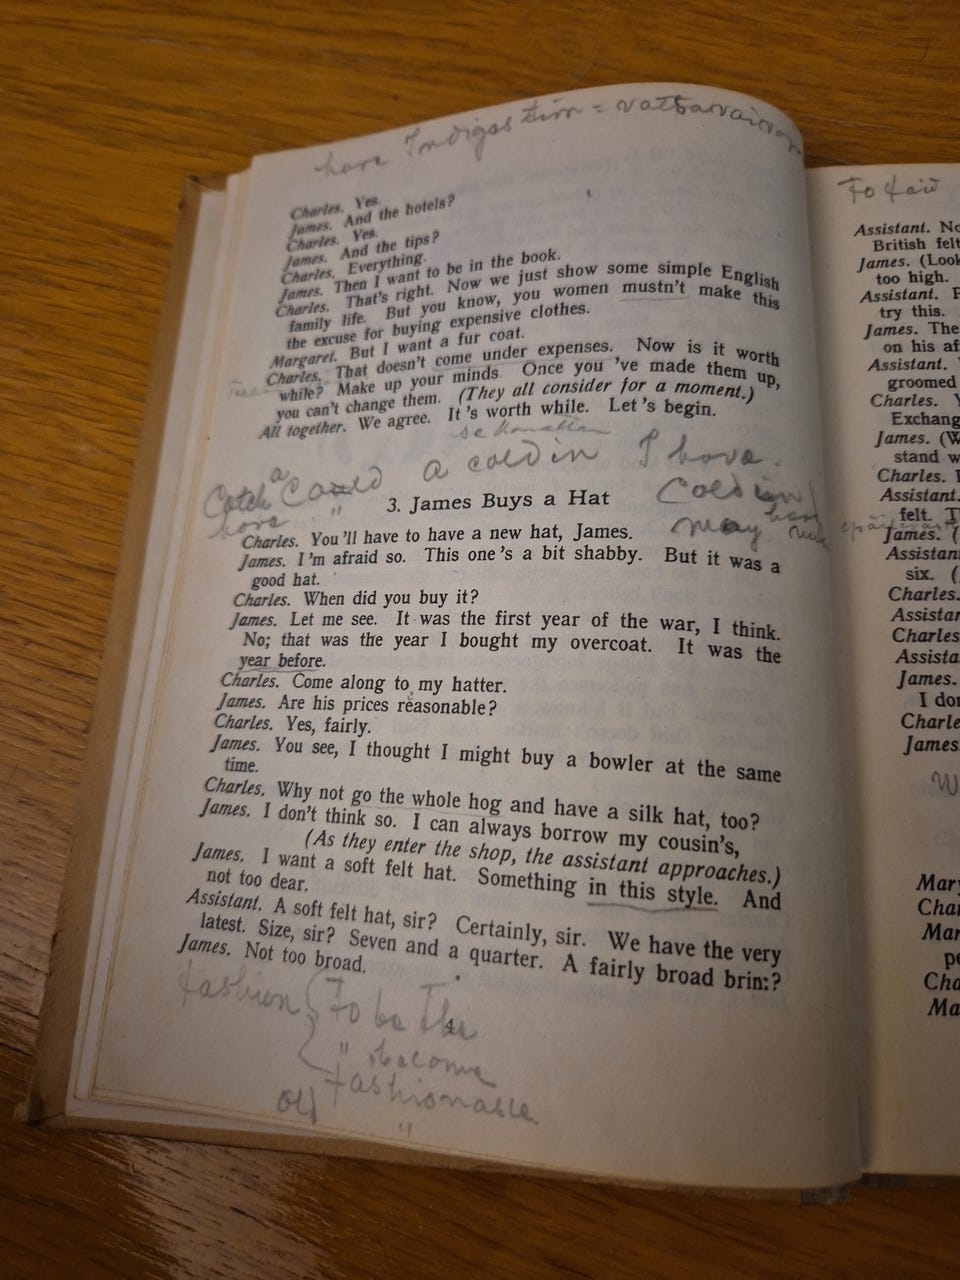 have Indigestion = vatsavaivoja
Charles. Yes.
James. And the hotels?
Charles. Yes.
James. And the tips?
Charles. Everything.
James. Then I want to be in the book.
Charles. That's right. Now we just show some simple English
family life. But you know, you women mustn't make this
the excuse for buying expensive clothes.
Margaret. But I want a fur coat.
Charles. That doesn't come under expenses. Now is it worth
while? Make up your minds. Once you 've made them up,
you can't change them. (They all consider for a moment.)
All together. We agree. It 's worth while. Let 's begin.
a cold in I have.
Catch a Cold
have "
Cold in
may
3. James Buys a Hat
Charles. You 'll have to have a new hat, James.
James. I 'm afraid so. This one 's a bit shabby. But it was a
good hat.
Charles. When did you buy it?
James. Let me see. It was the first year of the war, I think.
No; that was the year I bought my overcoat. It was the
year before.
Charles. Come along to my hatter.
James. Are his prices reasonable?
Charles. Yes, fairly.
James. You see, I thought I might buy a bowler at the same
time.
Charles. Why not go the whole hog and have a silk hat, too?
James. I don't think so. I can always borrow my cousin's,
(As they enter the shop, the assistant approaches.)
James. I want a soft felt hat. Something in this style. And
not too dear.
Assistant. A soft felt hat, sir? Certainly, sir. We have the very
latest. Size, sir? Seven and a quarter. A fairly broad brin:?
James. Not too broad.
4
fashion { To be the
" become
fashionable
of "
To
Assistant. No
British felt
James. (Look
too high.
Assistant.
try this.
James. The
on his af
Assistant.
groomed
Charles. Y
Exchang
James. (W
stand w
Charles. I
Assistant.
felt. T
James. (
Assistan
six. (
Charles.
Assistar
Charles
Assista
James.
I do
Charle
James
W
Mary
Char
Mar
pe
Cha
Ma